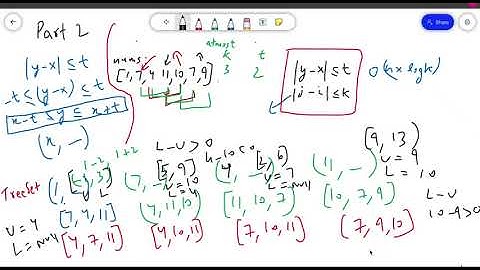 Part 2
|y-x| ≤ t
-t ≤ (y-x) ≤ t
x-t ≤ y ≤ x+t
(x, —)
nums
atmost
k t
[1, 7, 4, 11, 10, 7, 9] 3 2
|y-x| ≤ t
|j-i| ≤ k
O(n x log k)
1-2 1+2
L-U > 0
[5, 9]
U = 10
L = 4
4-10 < 0
[2, 6]
U = 7
L = null
[9, 13)
U = 9
L = 10
L-U
10-9 > 0
TreeSet
(1, (7, — (4, (11, —)
[-1, 3]
U = 4
L = null
[7, 4, 11] (4, 11, 10) [11, 10, 7) [10, 7, 9]
[4, 7, 11] [4, 10, 11] [7, 10, 11] [7, 9, 10]